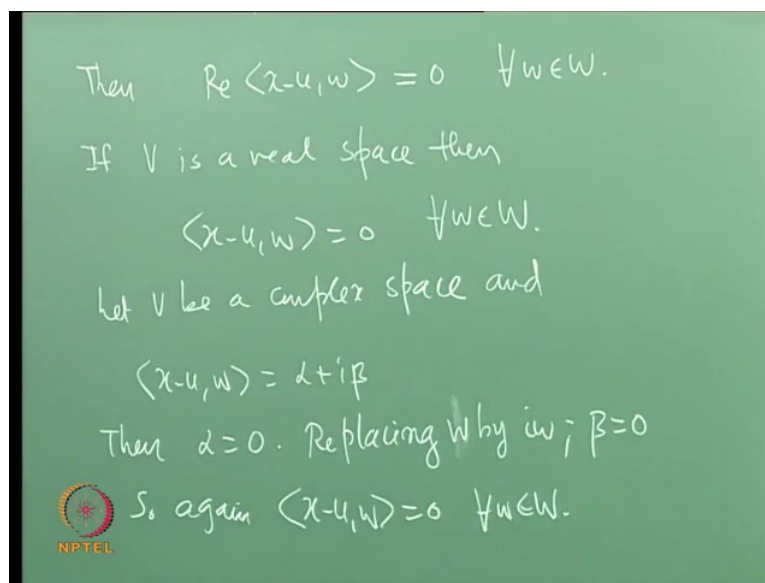 Then Re <x-u, w> = 0 ∀w∈W.
If V is a real space then
<x-u, w> = 0 ∀w∈W.
Let V be a complex space and
<x-u, w> = α+iβ
Then α=0. Replacing w by iw; β=0
So again <x-u, w> = 0 ∀w∈W.
NPTEL